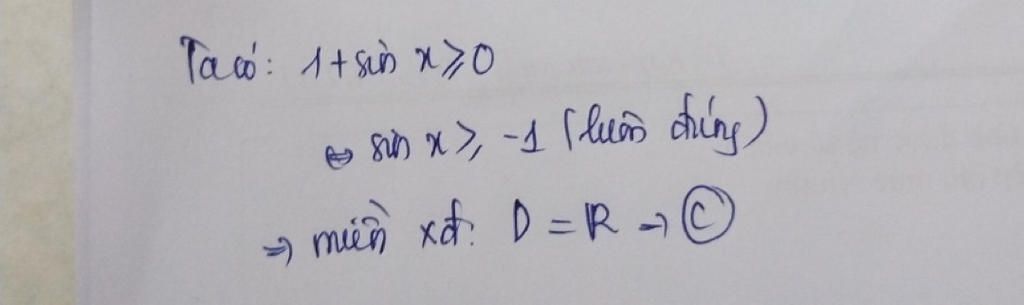 Ta có: 1 + sin x ⩾ 0
⇔ sin x ⩾ -1 (luôn đúng)
⇒ miền xđ: D = ℝ → Ⓒ